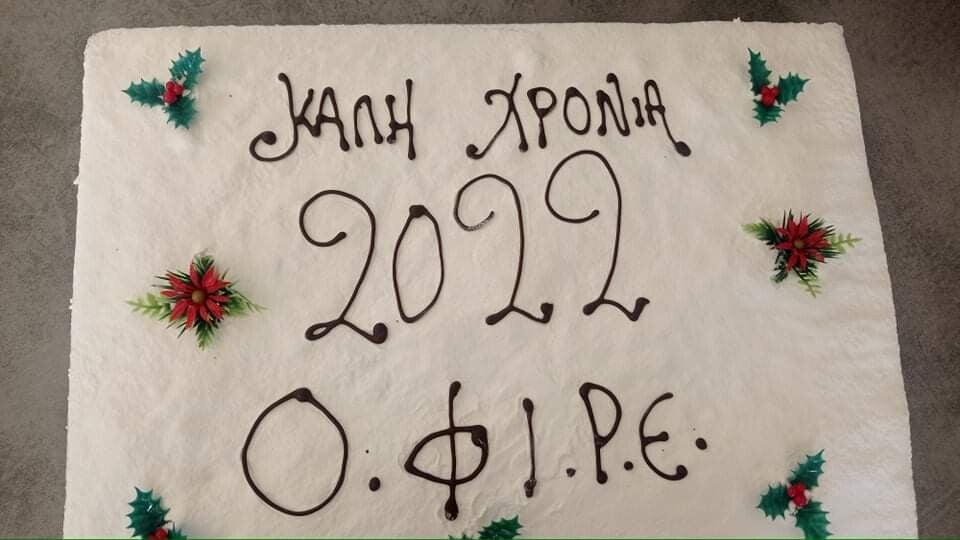 ΚΑΛΗ ΧΡΟΝΙΑ
2022
Ο.ΦΙ.Ρ.Ε.